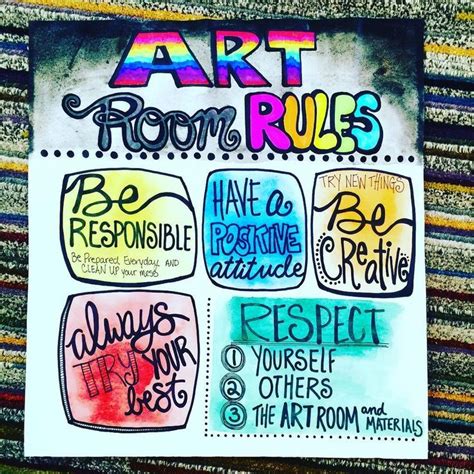 ART
Room RULES
Be
RESPONSIBLE
Be Prepared Everyday, AND
CLEAN UP your mess
HAVE A
POSITIVE
attitude
TRY NEW THINGS
Be
Creative
always
TRY YOUR
best
RESPECT
1 YOURSELF
2 OTHERS
3 THE ART ROOM and
MATERIALS